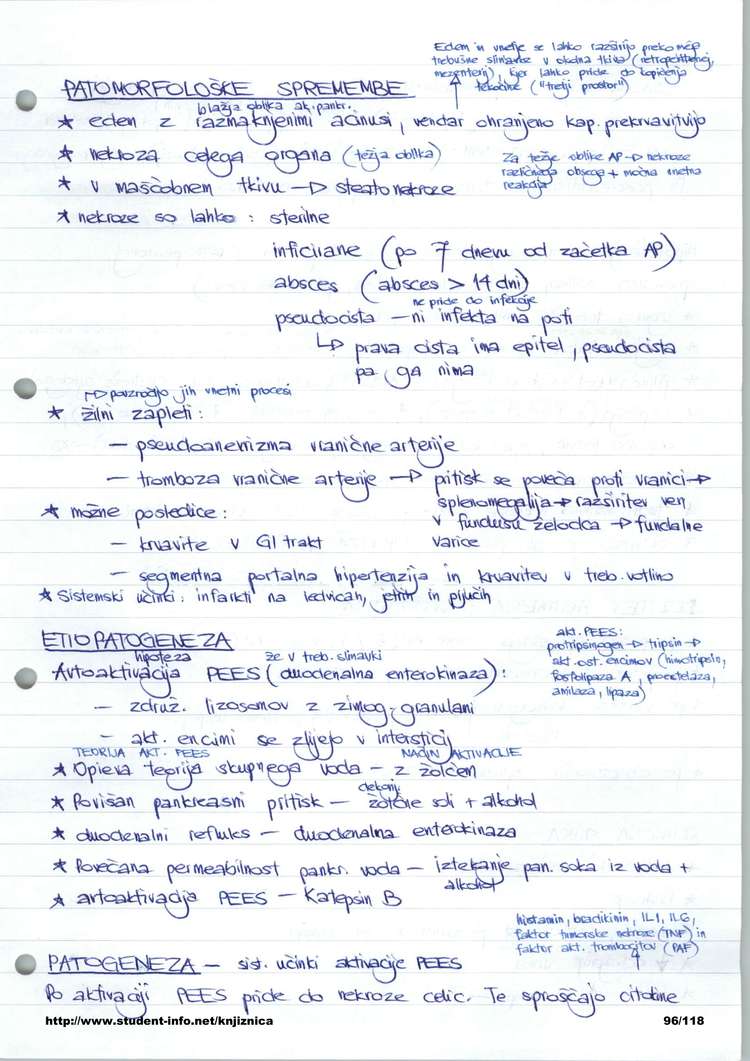 Edem in vnetje se lahko razširijo preko meje
trebušne slinavke v okolna tkiva (retroperitonej,
mezenterij), kjer lahko pride do kopičenja
tekočine ("tretji prostor")
PATOMORFOLOŠKE SPREMEMBE
blažja oblika ak. pankr.
* edem z razmaknjenimi acinusi, vendar ohranjeno kap. prekrvavitvijo
* nekroza celega organa (težja oblika)
Za težje oblike AP → nekroze
različnega obsega + močna vnetna
reakcija
* v maščobnem tkivu → steatonekroze
* nekroze so lahko : sterilne
inficirane (po 7 dnevu od začetka AP)
absces (absces > 14 dni)
ne pride do infekcije
pseudocista – ni infekta na poti
↳ prava cista ima epitel, pseudocista
pa ga nima
↱ povzročijo jih vnetni procesi
* žilni zapleti :
– pseudoanevrizma vranične arterije
– tromboza vranične arterije → pritisk se poveča proti vranici →
splenomegalija → razširitev ven
v fundusu želodca → fundalne
varice
* možne posledice :
– krvavite v GI trakt
– segmentna portalna hipertenzija in krvavitev v treb. votlino
* Sistemski učinki : infarkti na ledvicah, jetrih in pljučih
ETIOPATOGENEZA
akt. PEES:
protripsinogen → tripsin →
akt. ost. encimov (himotripsin,
fosfolipaza A, proelastaza,
amilaza, lipaza)
hipoteza
že v treb. slinavki
Avtoaktivacija PEES (duodenalna enterokinaza) :
– združ. lizosomov z zimog. granulami
– akt. encimi se zlijejo v intersticij
TEORIJA AKT. PEES
NAČIN AKTIVACIJE
* Opieva teorija skupnega voda – z žolčem
* Povišan pankreasni pritisk – žolčne soli + alkohol
* duodenalni refluks – duodenalna enterokinaza
* Povečana permeabilnost pankr. voda – iztekanje pan. soka iz voda +
alkohol
* avtoaktivacija PEES – Katepsin B
histamin, bradikinin, IL1, IL6,
faktor tumorske nekroze (TNF) in
faktor akt. trombocitov (PAF)
PATOGENEZA – sist. učinki aktivacije PEES
Po aktivaciji PEES pride do nekroze celic. Te sproščajo citokine
http://www.student-info.net/knjiznica
96/118